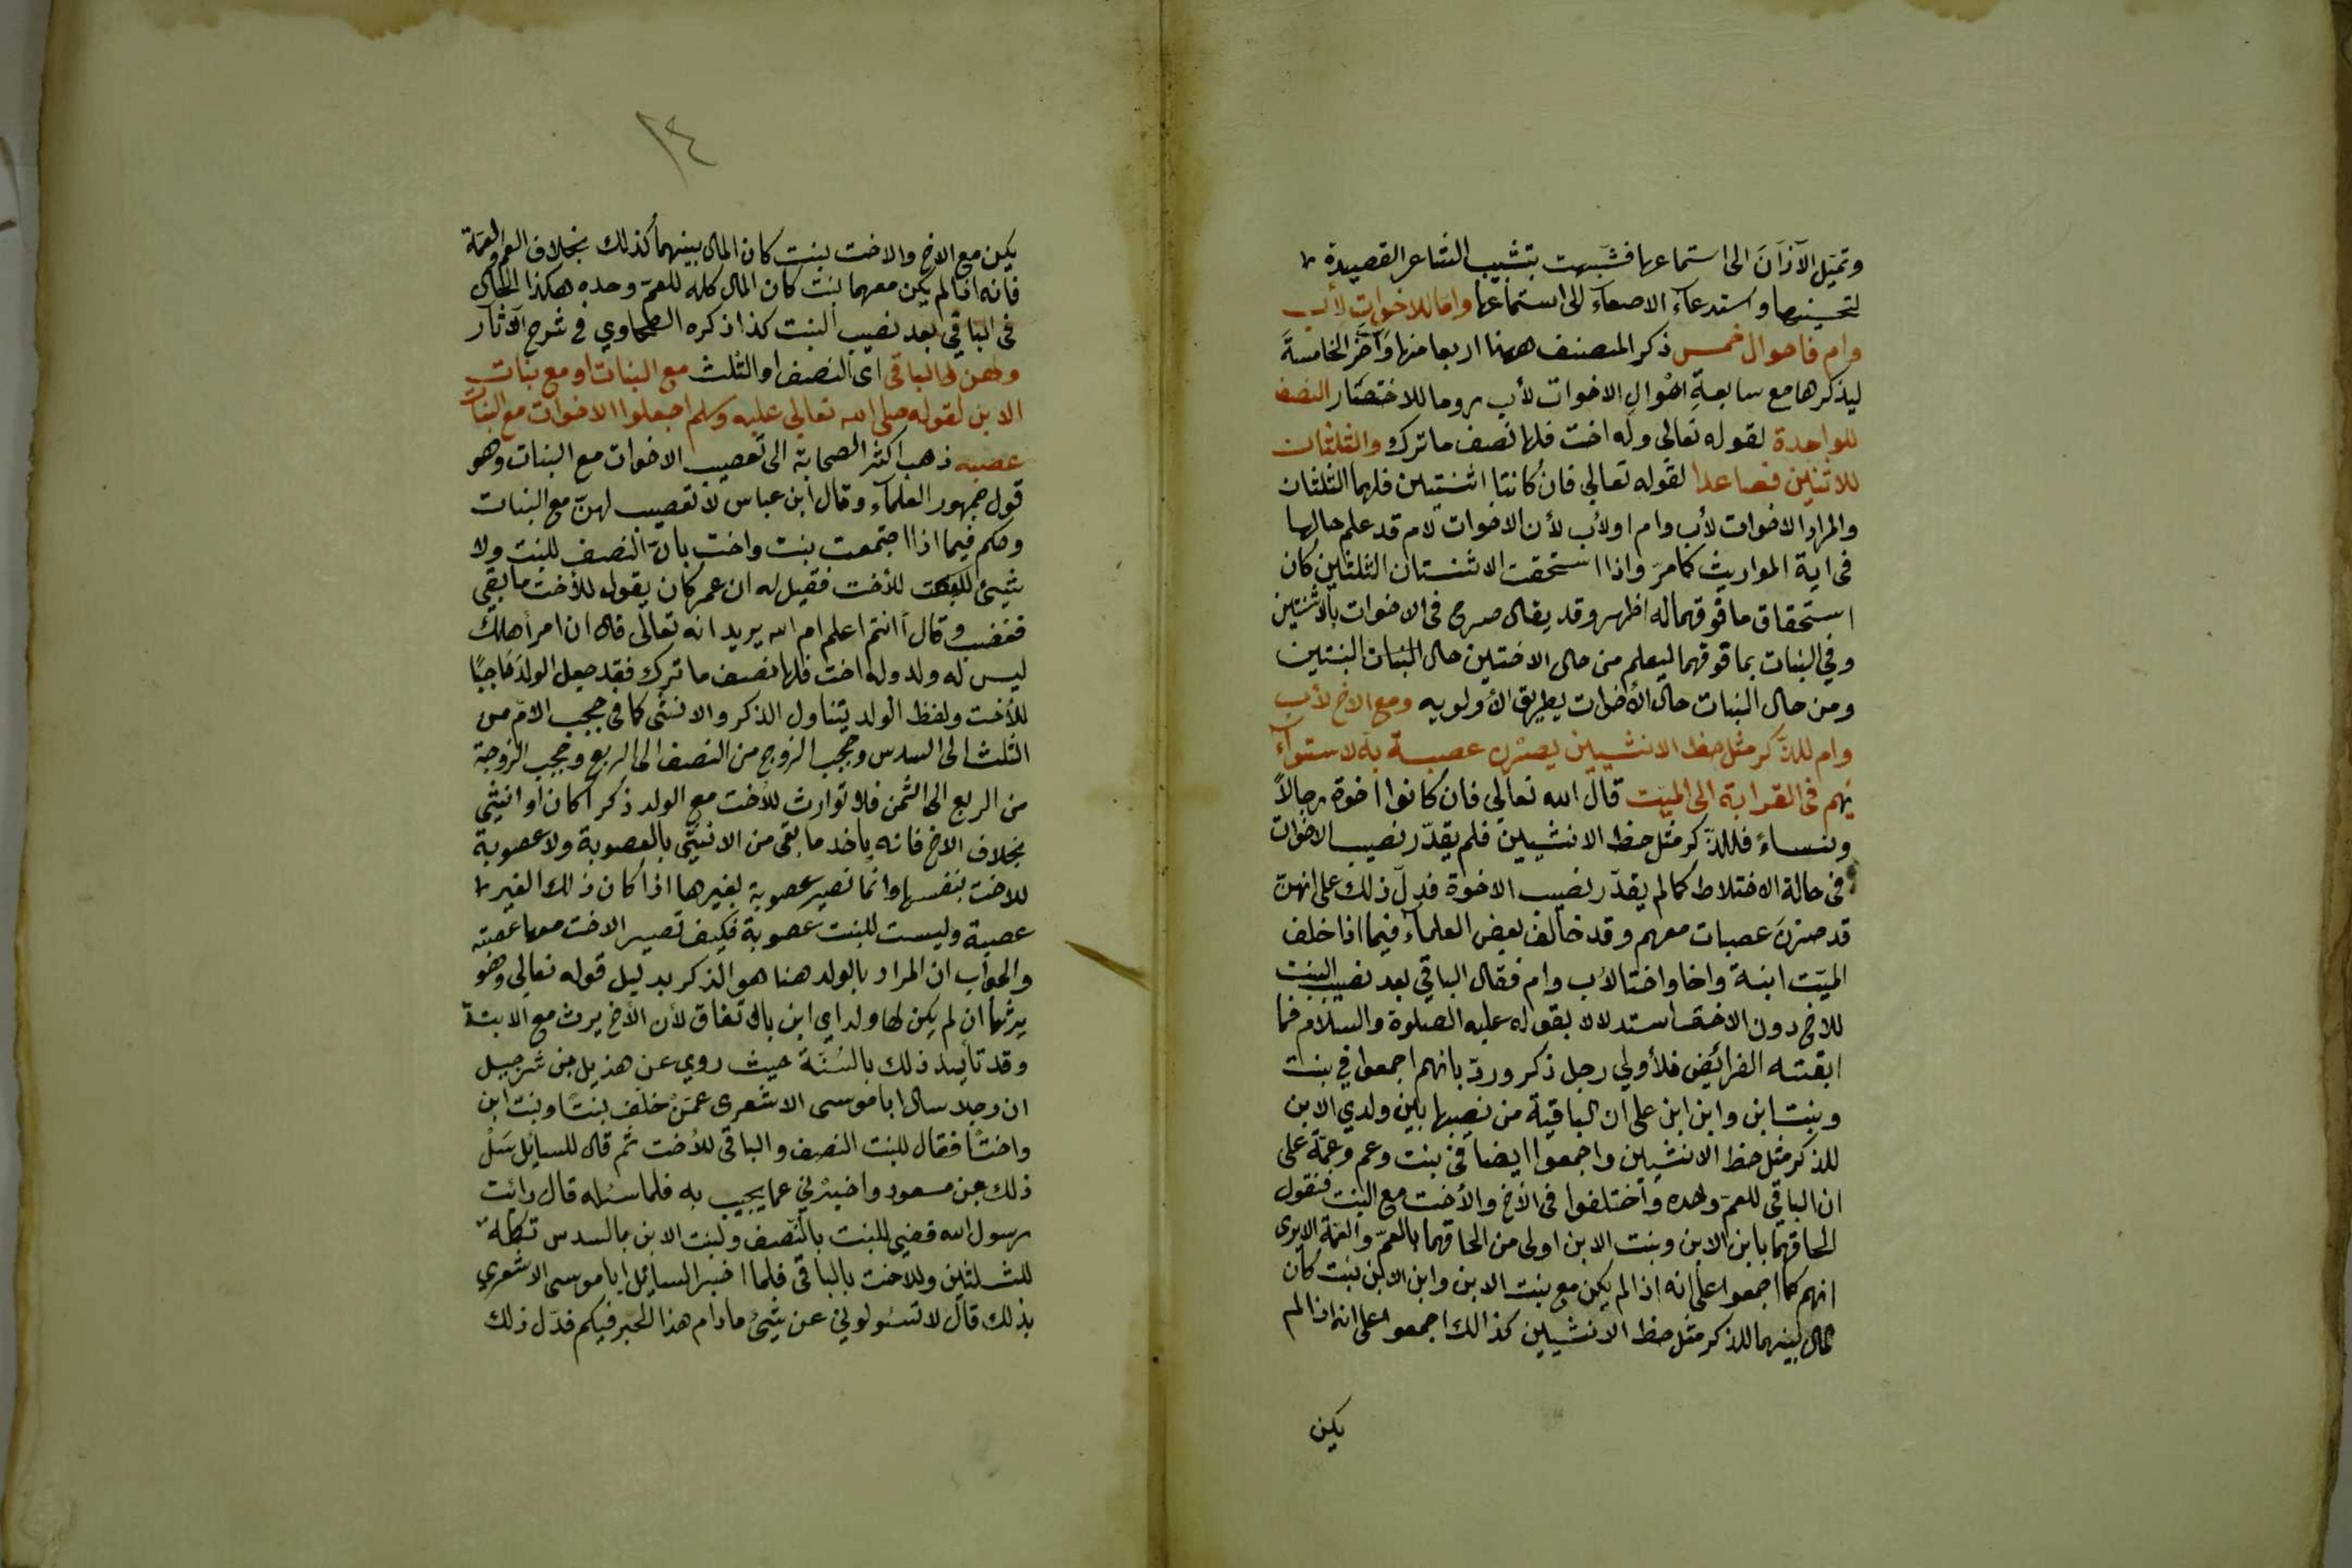 وتميل الآذان الى استماعها فشبهت بتشبيب الشاعر القصيدة
لتحسينها واستدعاء الاصغاء الى استماعها واما للاخوات لأب
وام فاحوال خمس ذكر المصنف ههنا اربعا منها وأخر الخامسة
ليذكرها مع سابعة احوال الاخوات لأب روما للاختصار النصف
للواحدة لقوله تعالى وله اخت فلها نصف ما ترك والثلثان
للاثنتين فصاعدا لقوله تعالى فان كانتا اثنتين فلهما الثلثان
والمراد الاخوات لأب وام او لأب لأن الاخوات لام قد علم حالها
فى اية المواريث كما مرّ واذا استحقت الاثنتان الثلثين كان
استحقاق ما فوقهما له اظهر وقد يقال صرح فى الاخوات بالاثنتين
وفي البنات بما فوقهما ليعلم من حال الاختين حال البنات البنتين
ومن حال البنات حال الأخوات بطريق الأولويه ومع الاخ لأب
وام للذكر مثل حظ الانثيين يصرن عصبة به لاستوآء
ئهم فى القرابة الى الميت قال الله تعالي فان كانوا اخوة رجالاً
ونساءً فللذكر مثل حظ الانثيين فلم يقدّر نصيب الاخوات
فى حالة الاختلاط كما لم يقدّر نصيب الاخوة فدلّ ذلك على انهنّ
قد صرنَ عصبات معهم وقد خالف بعض العلمآء فيما اذا خلف
الميّت ابنة واخا واختا لأب وام فقال الباقي بعد نصيب البنت
للاخ دون الاخت استدلالا بقوله عليه الصلوة والسلام فما
ابقته الفرائض فلأولي رجل ذكر وردّ بانهم اجمعوا في بنت
وبنت ابن وابن ابن على ان الباقية من نصيبها بين ولدي الابن
للذكر مثل حظ الانثيين واجمعوا ايضا فى بنت وعم وعمّة على
ان الباقي للعمّ وحده واختلفوا فى الأخ والأخت مع البنت فنقول
الحاقهما بابن الابن وبنت الابن اولى من الحاقهما بالعمّ والعمّة الا يرى
انهم كما اجمعوا على انه اذا لم يكن مع بنت الابن وابن الابن بنت كان
المال بينهما للذكر مثل حظ الانثيين كذالك اجمعوا على انه اذا لم
يكن
١٤
يكن مع الاخ والاخت بنت كان المال بينهما كذلك بخلاف العم والعمة
فانه اذا لم يكن معهما بنت كان المال كله للعمّ وحده هكذا الحال
فى الباقي بعد نصيب البنت كذا ذكره الطحاوي في شرح الآثار
ولهن الباقى اى النصف او الثلث مع البنات او مع بنات
الابن لقوله صلى الله تعالى عليه وسلم اجعلوا الاخوات مع البنات
عصبه ذهب اكثر الصحابة الى تعصيب الاخوات مع البنات وهو
قول جمهور العلمآء وقال ابن عباس لا تعصيب لهنّ مع البنات
وحكم فيما اذا اجتمعت بنت واخت بانّ النصف للبنت ولا
شيئ للأخت فقيل له ان عمر كان يقول للأخت ما بقى
فغضب وقال أانتم اعلم ام الله يريد انه تعالى قال ان امرأ هلك
ليس له ولد وله اخت فلها نصف ما ترك فقد جعل الولد حاجبًا
للأخت ولفظ الولد يتناول الذكر والانثى كما فى حجب الامّ من
الثلث الى السدس وحجب الزوج من النصف الى الربع وحجب الزوجة
من الربع الى الثمن فلا توارث للأخت مع الولد ذكرا كان او انثى
بخلاف الاخ فانه ياخذ ما بقى من الانثى بالعصوبة ولا عصوبة
للاخت بنفسها وانما تصير عصوبة بغيرها اذا كان ذلك الغير
عصبة وليست للبنت عصوبة فكيف تصير الاخت معها عصبته
والجواب ان المراد بالولد هنا هو الذكر بدليل قوله تعالي وهو
يرثها ان لم يكن لها ولد اي ابن بالاتفاق لأن الأخ يرث مع الابنة
وقد تأيد ذلك بالسُنّة حيث روي عن هذيل بن شرحبيل
ان رجلا سال ابا موسى الاشعرى عمّن خلّف بنتًا وبنت ابن
واختًا فقال للبنت النصف والباقى للأخت ثم قال للسائل سَلْ
ذلك عن مسعود واخبرني عما يجيب به فلما سئله قال رائت
رسول الله قضى للبنت بالنّصف ولبنت الابن بالسدس تكملة
للثلثين وللاخت بالباقي فلما اخبر السائل ابا موسى الاشعري
بذلك قال لا تسئولوني عن شيئ ما دام هذا الحبر فيكم فدلّ ذلك